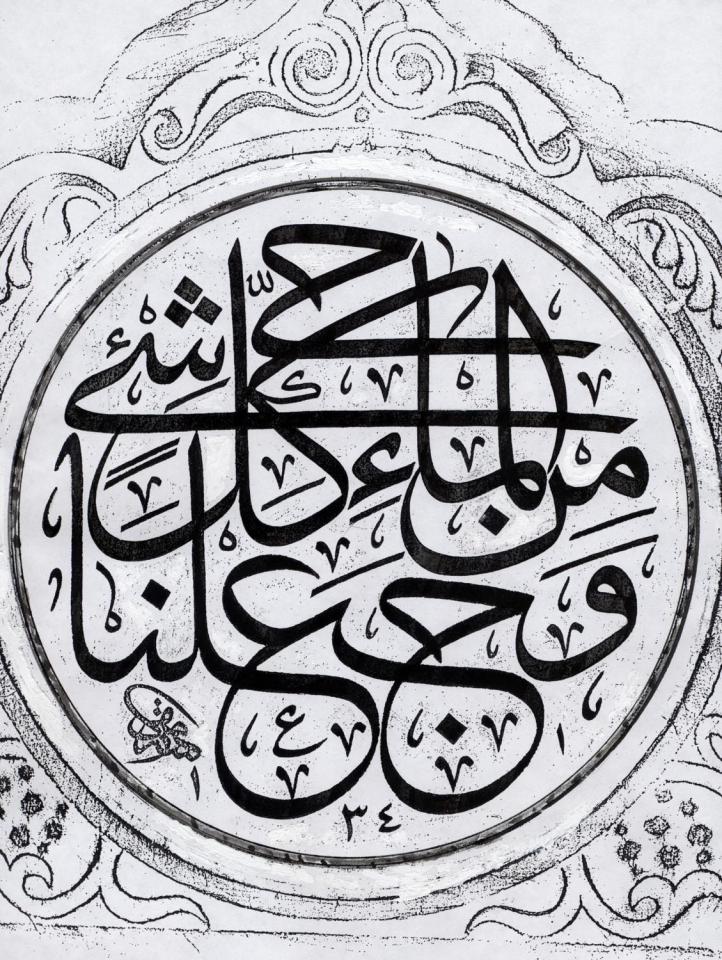 وَجَعَلْنَا
مِنَ الْمَاءِ كُلَّ
شَيْءٍ حَيٍّ
١٣٤١